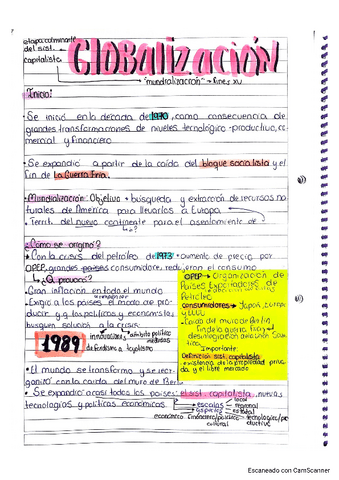 etapa culminante
del sist.
capitalista
GLOBALIZACIÓN
"mundialización" → fines XV
Inicio:
• Se inició en la década de 1970, como consecuencia de
grandes transformaciones de niveles tecnológico-productivo, co-
mercial y financiero
• Se expandió a partir de la caída del bloque socialista y el
fin de la Guerra Fría.
• Mundialización: Objetivo → búsqueda y extracción de recursos na-
turales de América para llevarlos a Europa
• Territ. del nuevo continente para el asentamiento de
¿Cómo se originó?
• Con la crisis del petróleo del 1973 → aumento de precio por
OPEP, grandes países consumidore, redujeron el consumo
¿Q produce?
• Gran inflación en todo el mundo
• Exigió a los países, el modo de pro-
ducir y q las políticas y economistas,
busquen solucios a la crisis
1989
innovaciones
ámbito político
medidas
OPEP → Organización de
Países Exportadores de
Petróleo
consumidores → Japón,
• Caída del muro de Berlín
Fin de la guerra fría y
Importante:
Definición sist. capitalista
existencia de la propiedad priva
da y el libre mercado
• El mundo se transformó y se reor-
ganizó con la caída del muro de Berlín
• Se expandió a casi todos los países: el sist. capitalista, nuevas
tecnologías y políticas económicas
escalas
local
regional
estatal
económico
financiero/político
cultural
tecnológico/pro-
ductivo
Escaneado con CamScanner